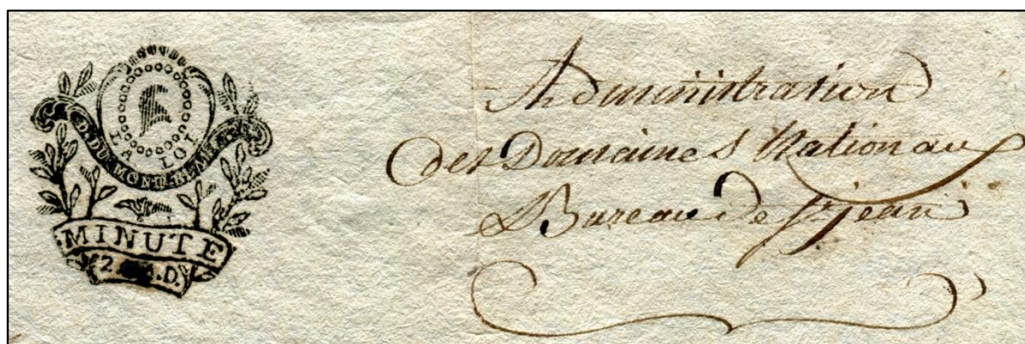 LA LOI
D. DU MONT-BLANC
MINUTE
2 D.
Administration
des Domaines Nationaux
Bureau de St. jean